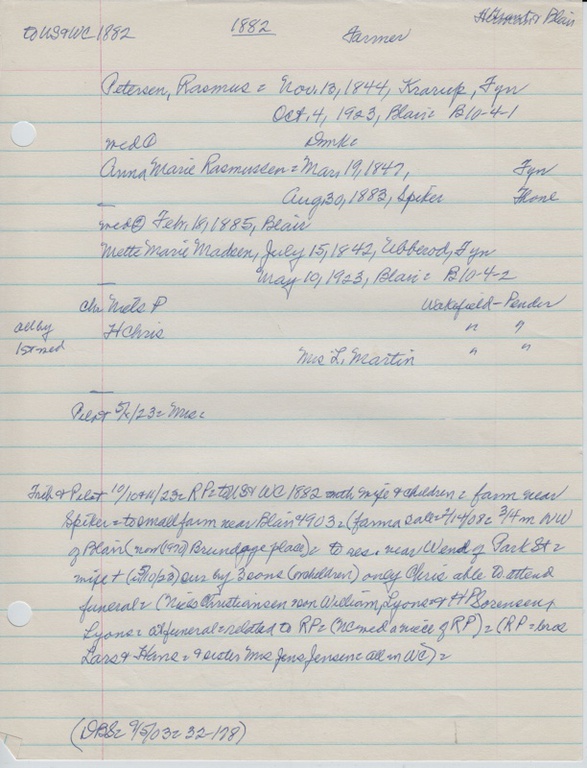 to US & WC 1882 1882 Farmer Blair
Petersen, Rasmus = Nov. 13, 1844, Krarup, Fyn
Oct. 4, 1923, Blair = B10-4-1
med ① Dmk =
Anna Marie Rasmussen = Mar. 19, 1847, Fyn
Aug. 30, 1883, Spiker Thone
med ② Feb. 18, 1885, Blair
Mette Marie Madsen, July 15, 1842, Ubberod, Fyn
May 10, 1923, Blair = B10-4-2
ch = Niels P Wakefield - Pender
all by H Chris " "
1st med Mrs. L. Martin " "
Pilot 5/ /23 = Mrs =
Trib & Pilot 10/10 & 11/23 = RP = to US & WC 1882 with wife & children = farm near
Spiker = to small farm near Blair 1903 = (farm sale = /14/08 = 3/4 m NW
of Blair (now (1970) Brundage place) = to res. near W end of Park St =
wife + (5/10/23) sur by 3 sons (no children) only Chris able to attend
funeral = (Niels Christiansen son William, Lyons & H P Sorensen,
Lyons = at funeral = related to RP = (NC med a niece of RP) = (RP = bros
Lars & Hans = & sister Mrs Jens Jensen = all in WC) =
(DBS = 9/5/03 = 32-178)